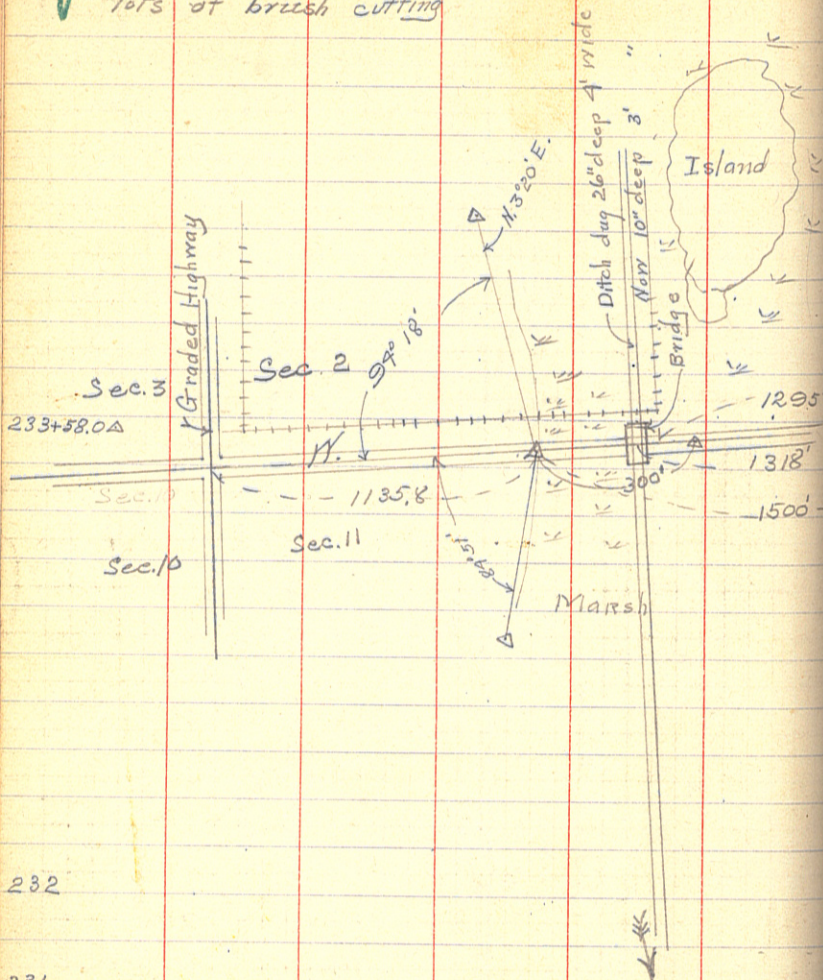 lots of brush cutting
Ditch dug 26" deep 4' wide
Now 10" deep 3' "
Island
N.3°20'E.
Graded Highway
94° 18'
Bridge
Sec. 2
Sec. 3
233+58.0△
1295
N.
1318'
300'
Sec. 10
1135.8
1500'
Sec. 11
Sec. 10
Marsh
232